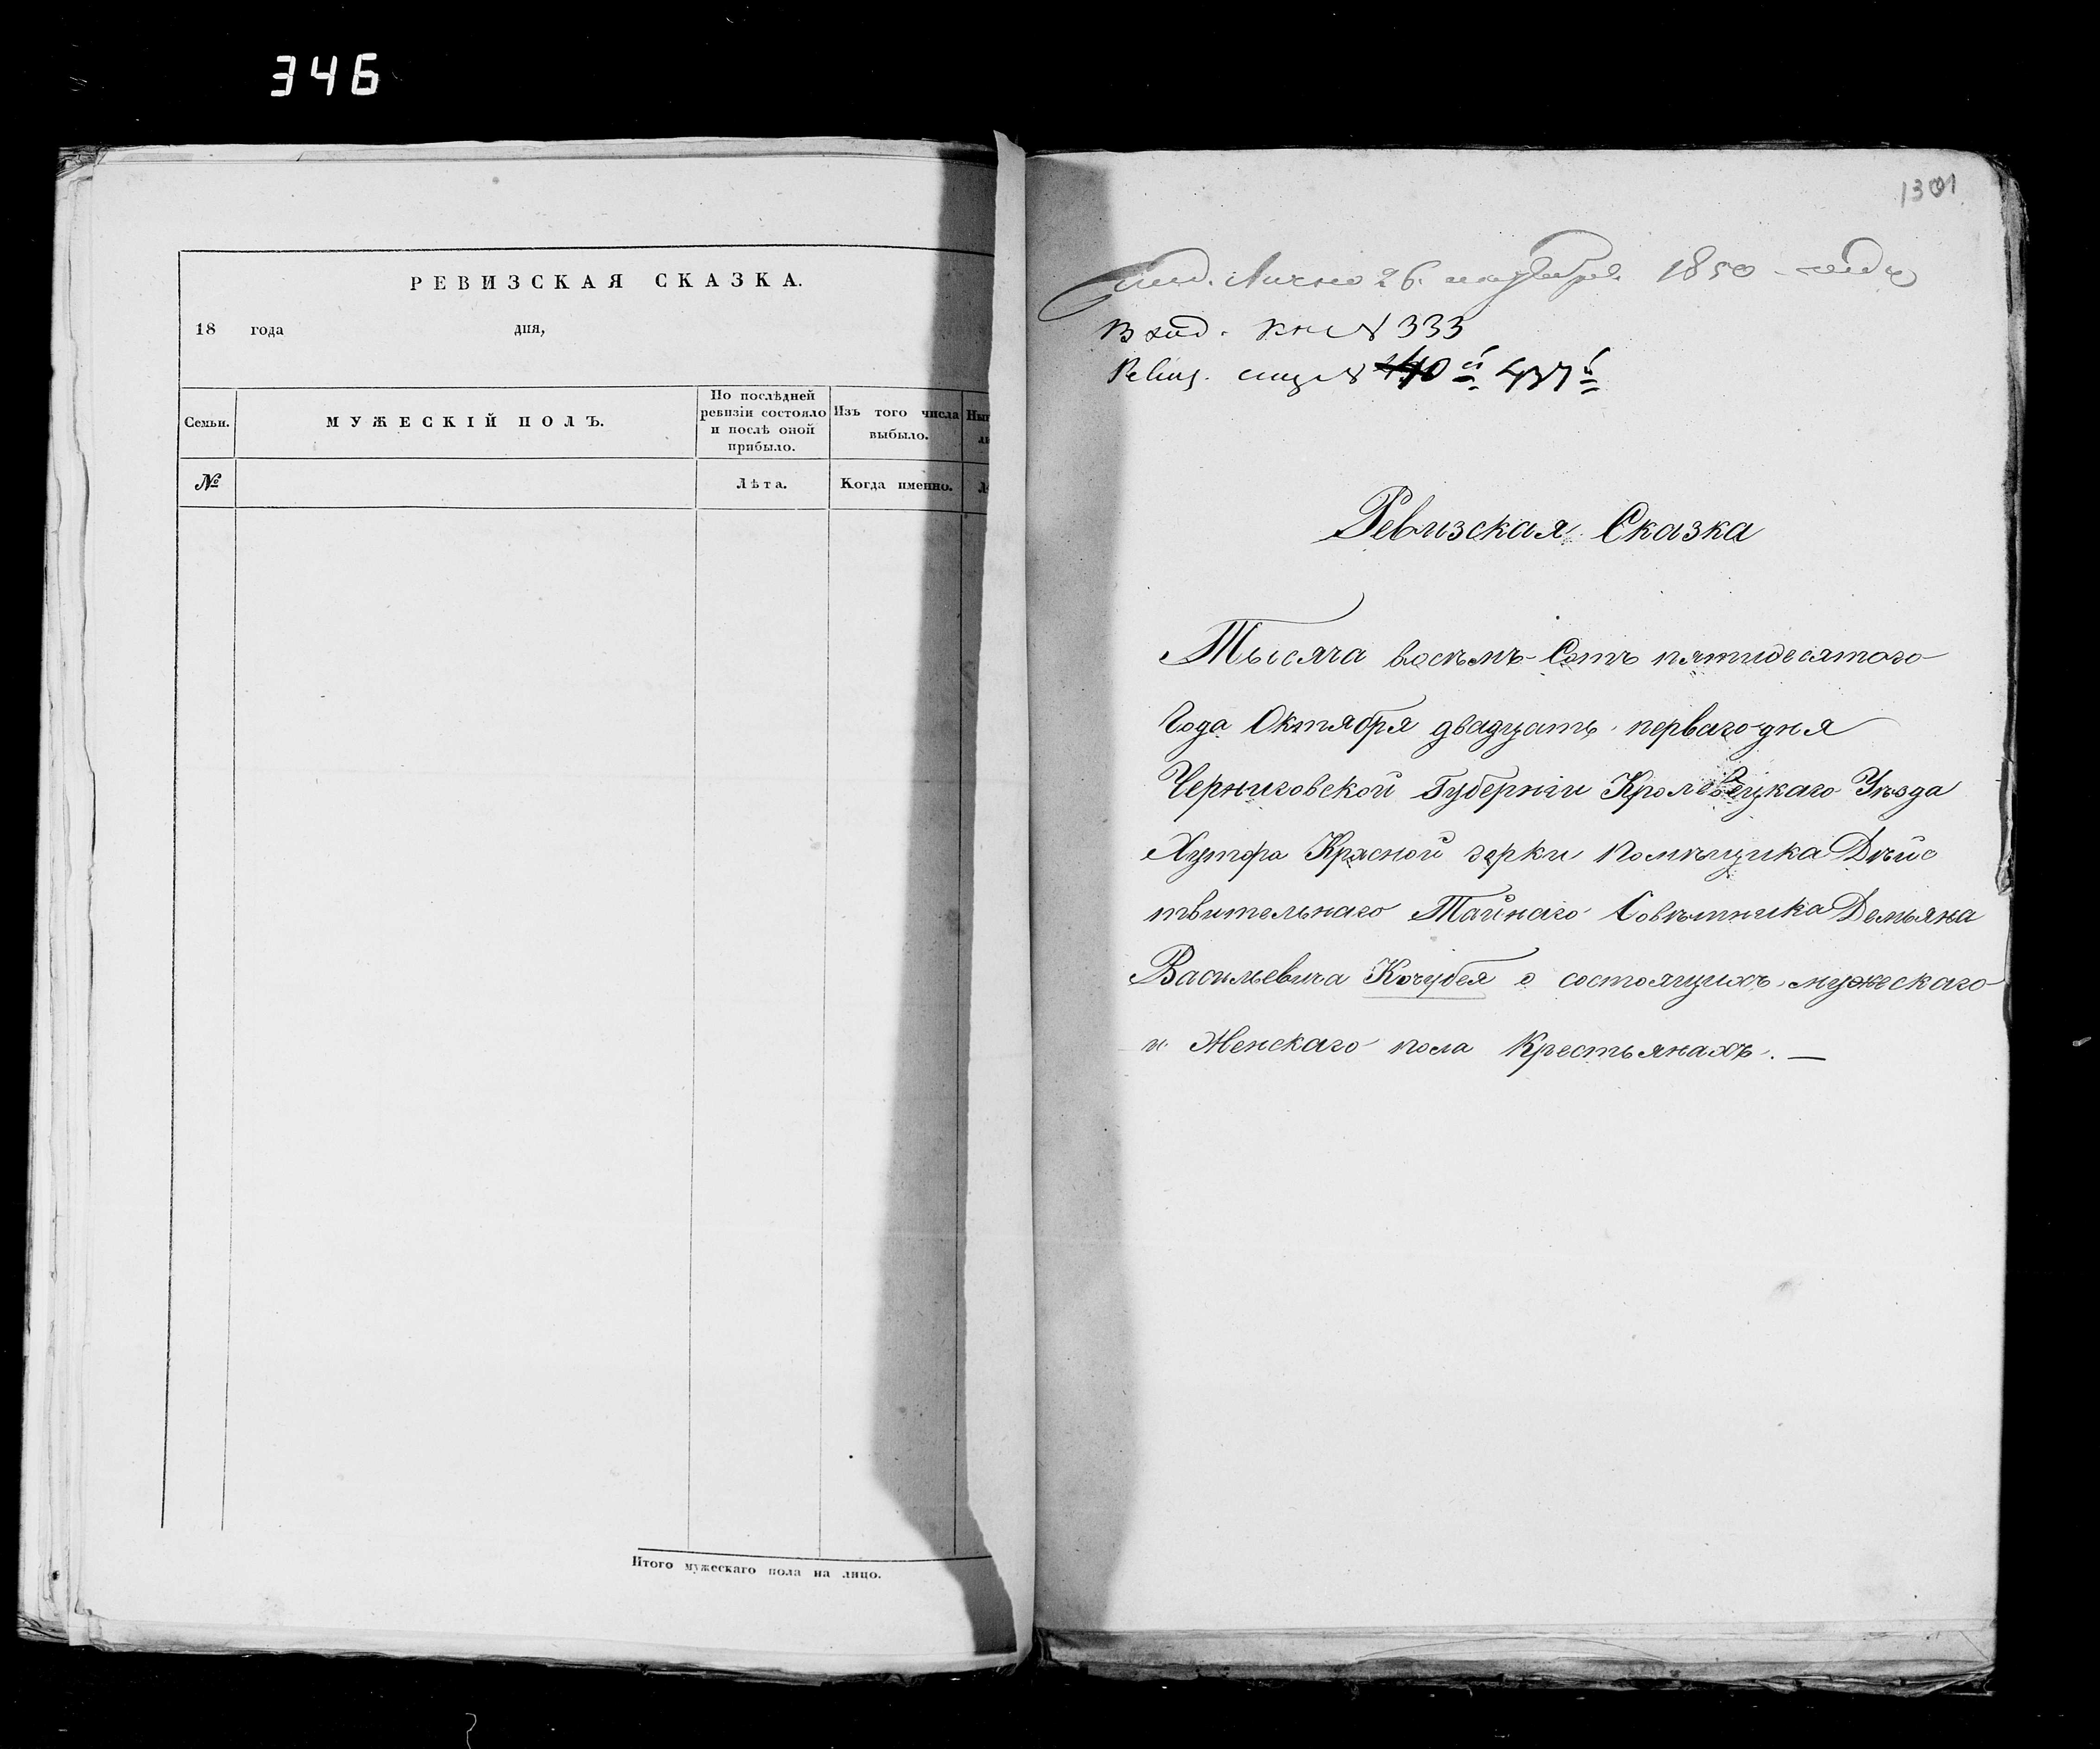 346
РЕВИЗСКАЯ СКАЗКА.
18 года дня,
Семьи.
МУЖЕСКІЙ ПОЛЪ.
По послѣдней
ревизіи состояло
и послѣ оной
прибыло.
Изъ того числа
выбыло.
№
Лѣта.
Когда именно.
Итого мужескаго пола на лицо.
1301
Лично 26 октября 1850 года
Вход. кн № 333
Ревиз. № 140й 437й
Ревизская Сказка
Тысяча восѣмъ Сотъ пятидесятого
Года Октября двадцать перваго дня
Черниговской Губерніи Кролевецкаго Уѣзда
Хутора Красной горки Помѣщика Дѣйс
твительнаго Тайнаго Совѣтника Демьяна
Васильевича Кочубея о состоящихъ мужескаго
и Женскаго пола Крестьянахъ. —